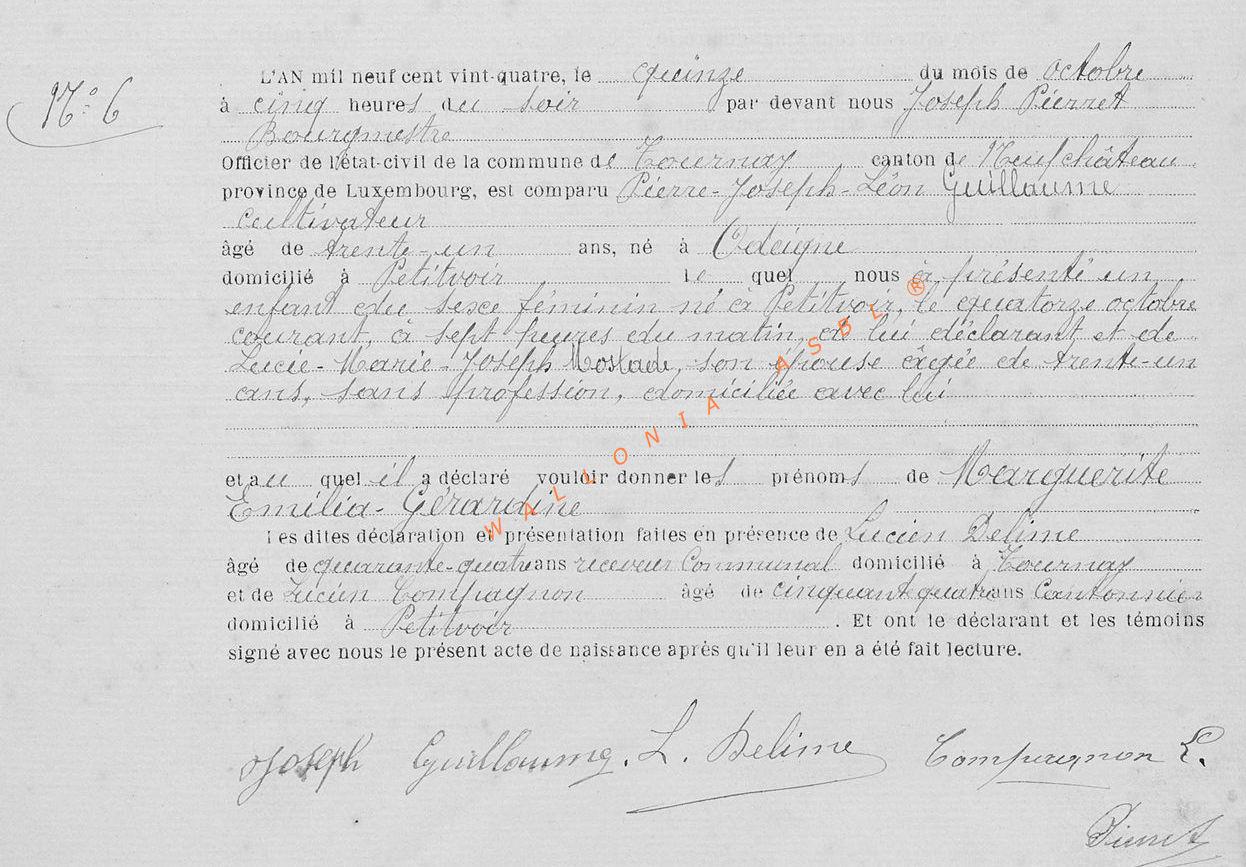 N° 6
L'AN mil neuf cent vint-quatre, le quinze du mois de octobre
à cinq heures du soir par devant nous Joseph Pierret
Bourgmestre
Officier de l'état-civil de la commune de Tournay, canton de Neufchâteau
province de Luxembourg, est comparu Pierre-Joseph-Léon Guillaume
cultivateur
âgé de trente-un ans, né à Odeigne
domicilié à Petitvoir le quel nous a présenté un
enfant du sexe féminin né à Petitvoir, le quatorze octobre
courant, à sept heures du matin, de lui déclarant et de
Lucie-Marie-Joseph Mostade, son épouse âgée de trente-un
ans, sans profession, domiciliée avec lui
et au quel il a déclaré vouloir donner les prénoms de Marguerite
Emilia-Gérardine
Les dites déclaration et présentation faites en présence de Lucien Delime
âgé de quarante-quatre ans receveur Communal domicilié à Tournay
et de Lucien Compagnon âgé de cinquant quatre ans Cantonnier
domicilié à Petitvoir. Et ont le déclarant et les témoins
signé avec nous le présent acte de naissance après qu'il leur en a été fait lecture.
Joseph Guillaume. L. Delime Compagnon L.
Pierret
WALLONIA ASBL ®